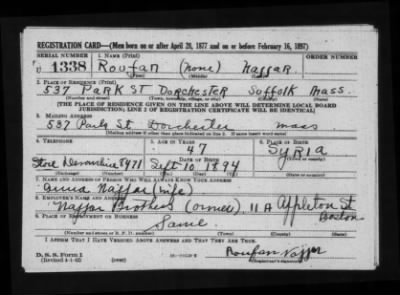 REGISTRATION CARD—(Men born on or after April 28, 1877 and on or before February 16, 1897)
SERIAL NUMBER 1. NAME (Print) ORDER NUMBER
U 1338 Roufan (none) Naffar
(First) (Middle) (Last)
2. PLACE OF RESIDENCE (Print)
537 Park ST Dorchester Suffolk Mass.
(Number and street) (Town, township, village, or city) (County) (State)
[THE PLACE OF RESIDENCE GIVEN ON THE LINE ABOVE WILL DETERMINE LOCAL BOARD
JURISDICTION; LINE 2 OF REGISTRATION CERTIFICATE WILL BE IDENTICAL]
3. MAILING ADDRESS
537 Park St Dorchester mass
[Mailing address if other than place indicated on line 2. If same insert word same]
4. TELEPHONE 5. AGE IN YEARS 6. PLACE OF BIRTH
47 Syria
DATE OF BIRTH
Store 8971 Sept 10, 1894
7. NAME AND ADDRESS OF PERSON WHO WILL ALWAYS KNOW YOUR ADDRESS
Anna Naffar (wife)
8. EMPLOYER'S NAME AND ADDRESS
Naffar Brothers (owner) 11A Appleton St
Boston
9. PLACE OF EMPLOYMENT OR BUSINESS
Same
(Number and street or R. F. D. number) (Town) (County) (State)
I AFFIRM THAT I HAVE VERIFIED ABOVE ANSWERS AND THAT THEY ARE TRUE.
D. S. S. Form 1
(Revised 4-1-42) (over)
Roufan Naffar
(Registrant's signature)